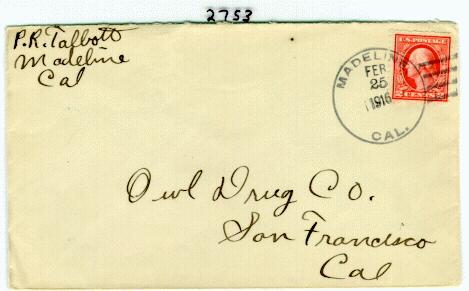 2753
P.R. Talbott
Madeline
Cal
MADELINE
FEB
25
1916
CAL.
U.S. POSTAGE
2 CENTS 2
Owl Drug Co.
San Francisco
Cal